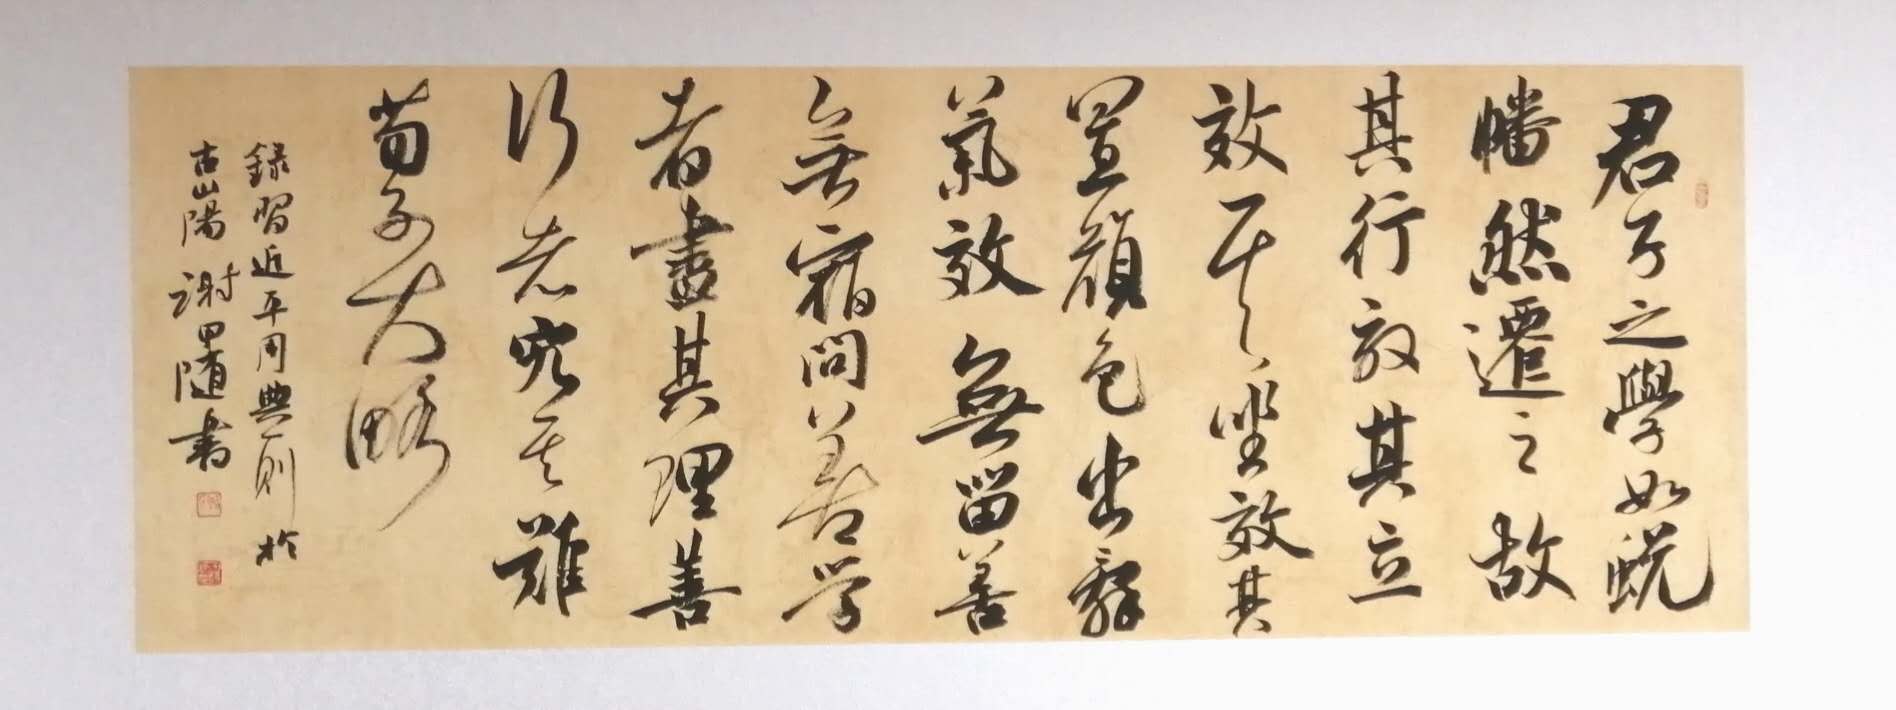 君子之學如蜕
幡然遷之故
其行效其立
效其坐效其
置顔色出辭
氣效無留善
無宿問善学
者盡其理善
行者究其難
荀子大略
録習近平用典一则於
古山陽谢随書